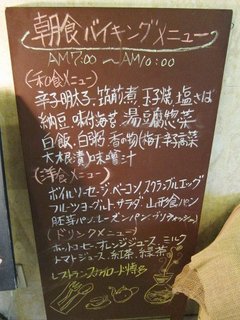 朝食バイキングメニュー
AM7:00 〜AM10:00
(和食メニュー)
辛子明太子、筑前煮、玉子焼、塩さば
納豆、味付海苔、湯豆腐、惣菜
白飯、白粥、香の物(梅干、高菜
大根漬)味噌汁
(洋食メニュー)
ボイルソーセージ、ベーコン、スクランブルエッグ
フルーツヨーグルト、サラダ、山形食パン
胚芽パン、レーズンパン、
(ドリンクメニュー)
ホットコーヒー、オレンジジュース、ミルク
トマトジュース、紅茶、緑茶
レストランスカブロード博多